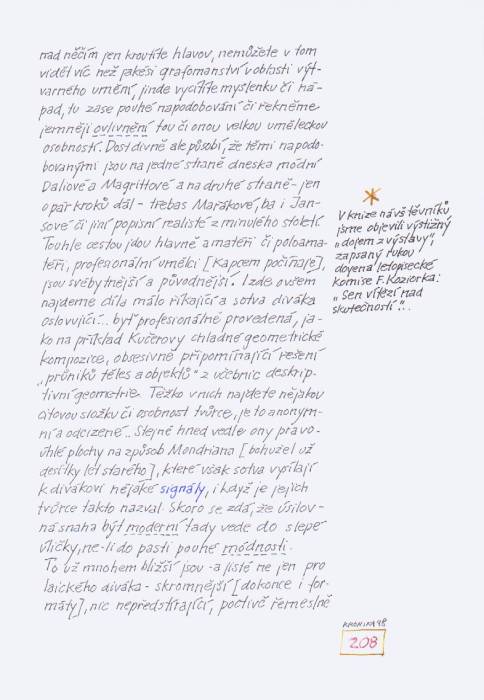 nad něčím jen kroutíte hlavou, nemůžete v tom
vidět víc než jakési grafomanství v oblasti výt-
varného umění, jinde vycítíte myslenku či ná-
pad, tu zase pouhé napodobování či řekněme
jemněji ovlivnění tou či onou velkou uměleckou
osobností. Dost divně ale působí, že těmi napodo-
bovanými jsou na jedné straně dneska módní
Daliové a Magrittové a na druhé straně - jen
o pár kroků dál - třebas Mařákové, ba i Jan-
sové či jiní popisní realisté z minulého století.
Touhle cestou jdou hlavně amatéři či poloama-
téři, profesionální umělci [Kapcem počínaje],
jsou svébytnější a původnější. I zde ovšem
najdeme díla málo říkající a sotva diváka
oslovující... byť profesionálně provedená, ja-
ko na příklad Kučerovy chladné geometrické
kompozice, obsesivně připomínající řešení
„průniků těles a objektů" z učebnic deskrip-
tivní geometrie. Těžko v nich najdete nějakou
citovou složku či osobnost tvůrce, je to anonym-
ní a odcizené.. Stejně hned vedle ony pravo-
úhlé plochy na způsob Mondriana [bohužel už
desítky let starého], které však sotva vysílají
k divákovi nějaké signály, i když je jejich
tvůrce takto nazval. Skoro se zdá, že úsilov-
ná snaha být moderní tady vede do slepé
uličky, ne-li do pasti pouhé módnosti.
To už mnohem bližší jsou - a jistě ne jen pro
laického diváka - skromnější [dokonce i for-
máty], nic nepředstírající, poctivě řemeslně
V knize návštěvníků
jsme objevili výstižný
„dojem z výstavy",
zapsaný rukou
doyena letopisecké
komise F. Koziorka:
„Sen vítězí nad
skutečností"..
KRONIKA 98
208